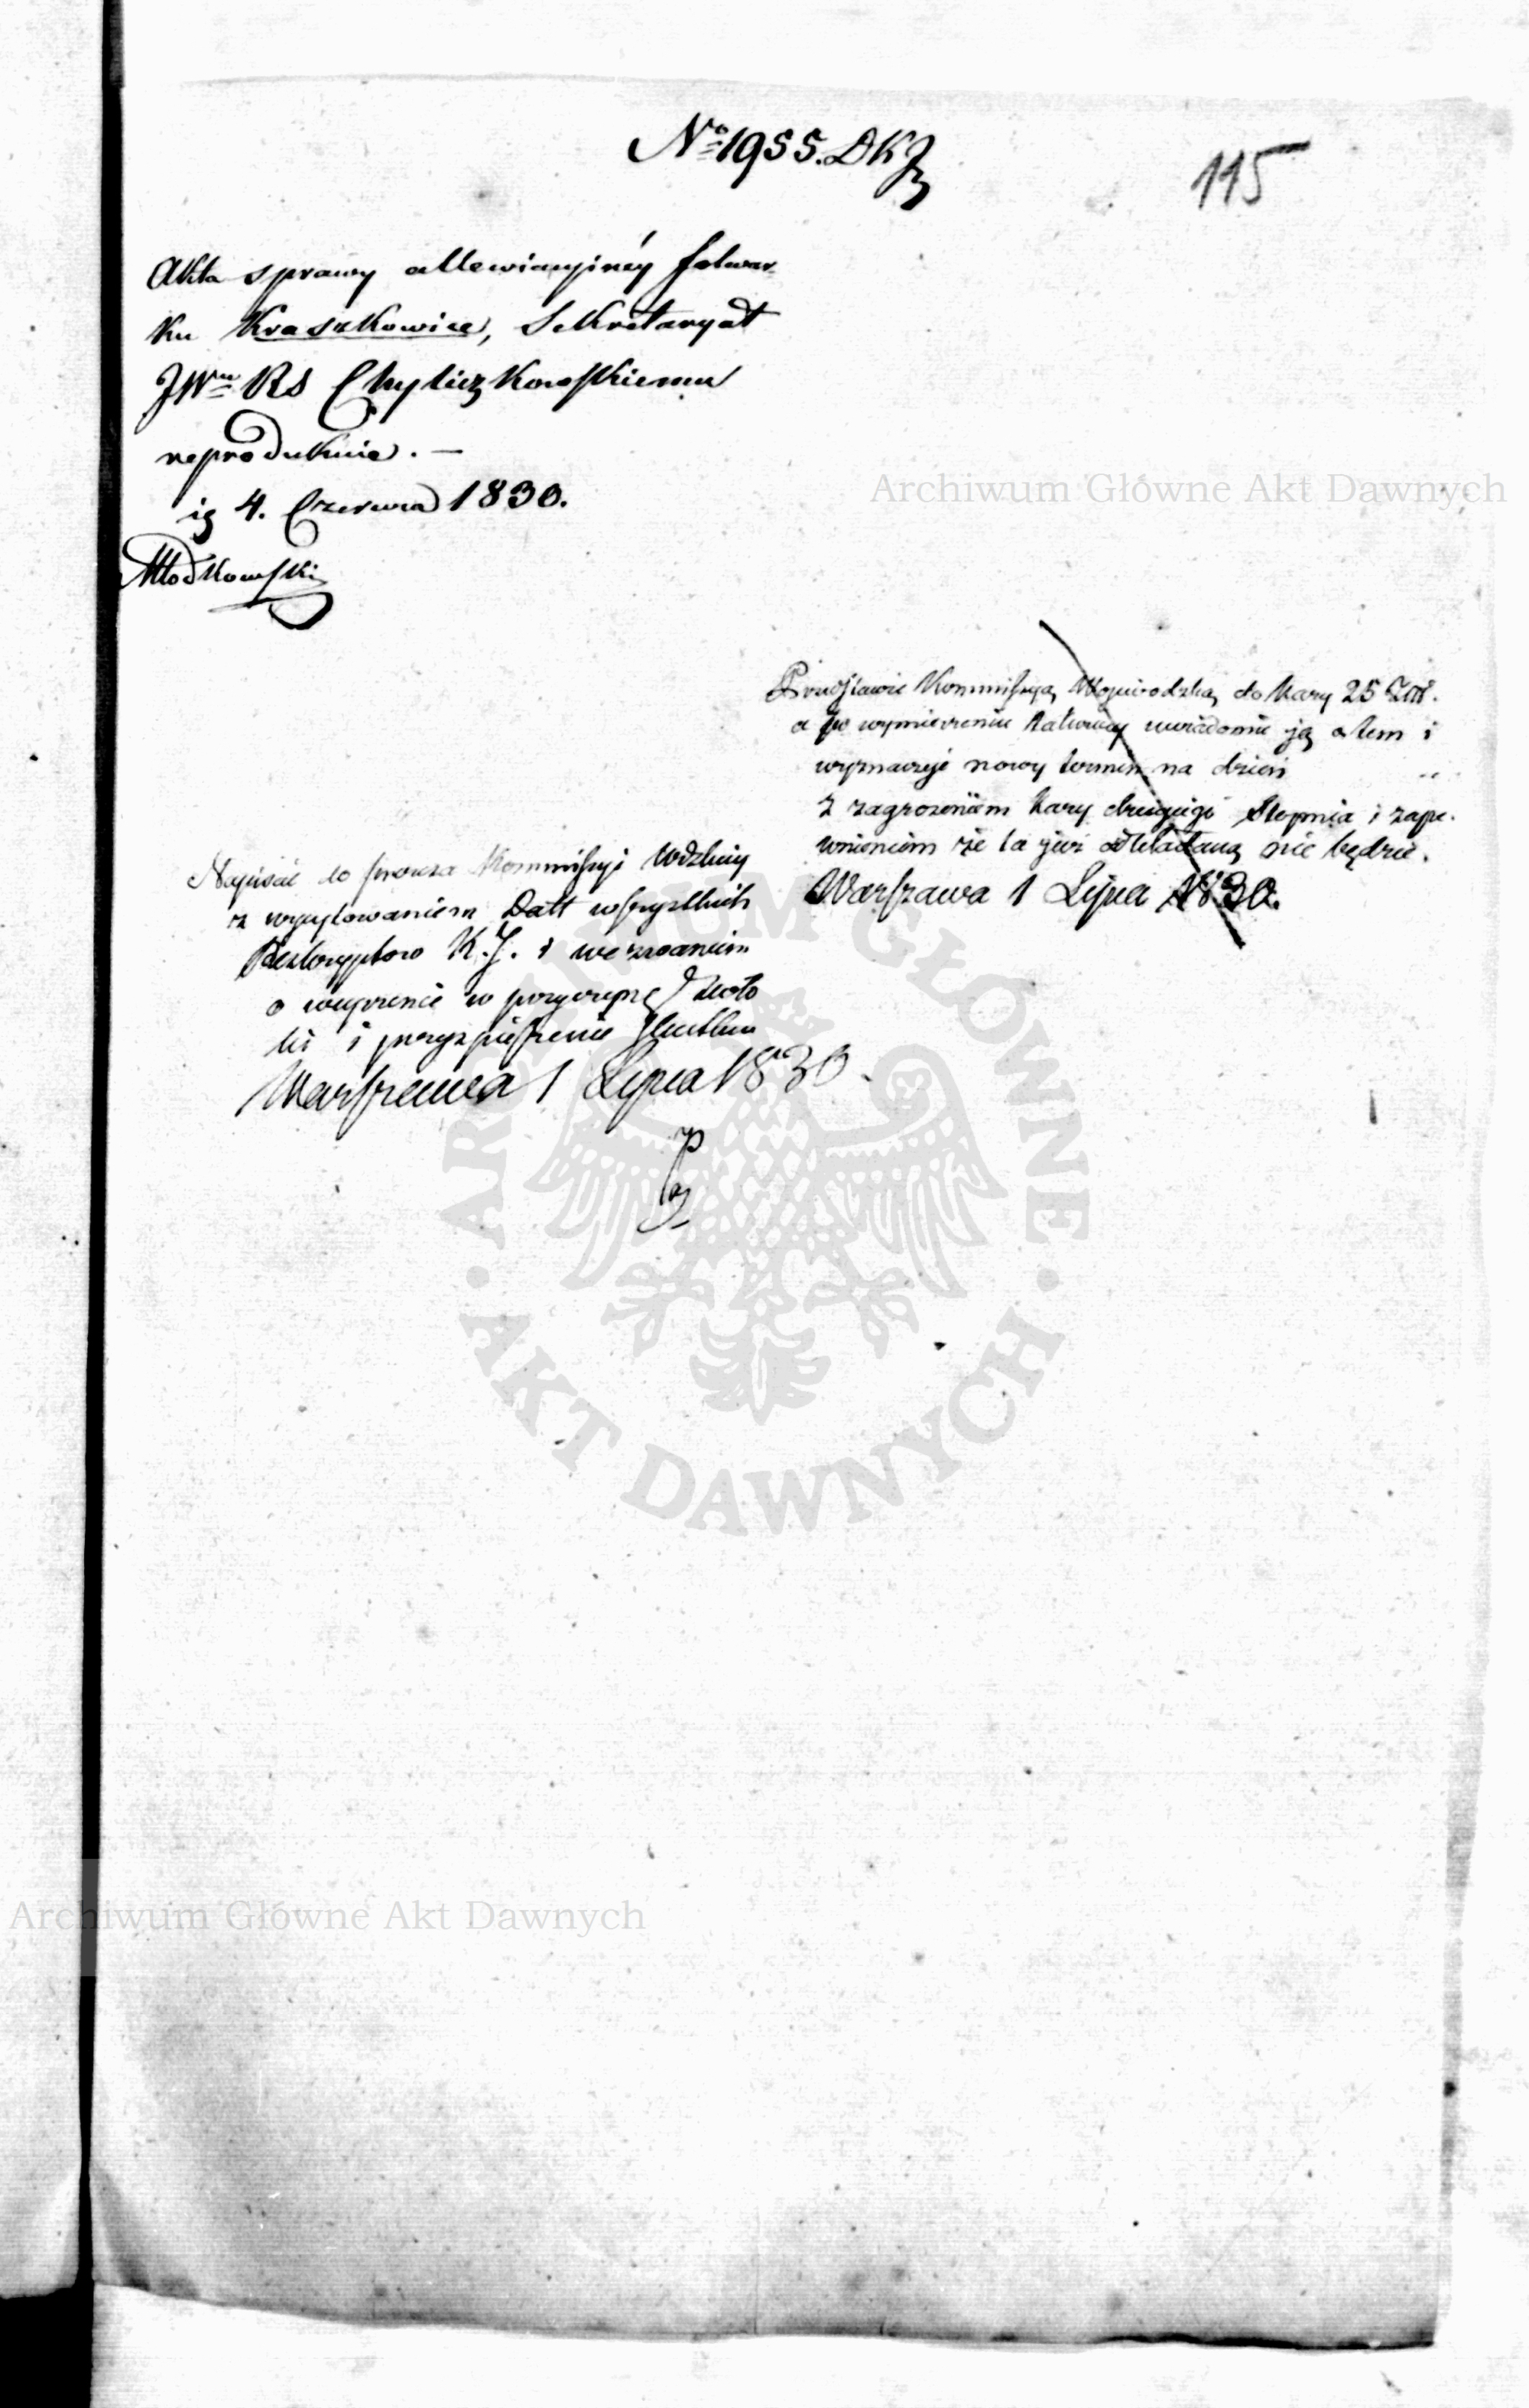 No 1955. DKJ
115
Akta sprawy allewiacyjnéy folwar
ku Kraszkowice, Sekretaryat
JWmu RS Chyliczkowskiemu
reprodukuie. —
4. Czerwca 1830.
Młodkowski
Kommissyą Woiewodzką do kary 25 Złł.
a po wymierzeniu uwiadomić ją o tem i
wyznaczyć nowy termin na dzień
z zagrożeniem kary drugiego Stopnia i zape-
wnieniem że ta już odkładaną nie będzie.
Warszawa 1 Lipca 1830.
Napisać do Kommissyi Wdzkiey
z wycytowaniem Datt wszystkich
Reskryptów K. J. i wezwaniem
o weyrzenie w przyczynę zwło
ki i przyspieszenie skutku
Warszawa 1 Lipca 1830.
Archiwum Główne Akt Dawnych
ARCHIWUM GŁÓWNE AKT DAWNYCH
Archiwum Główne Akt Dawnych